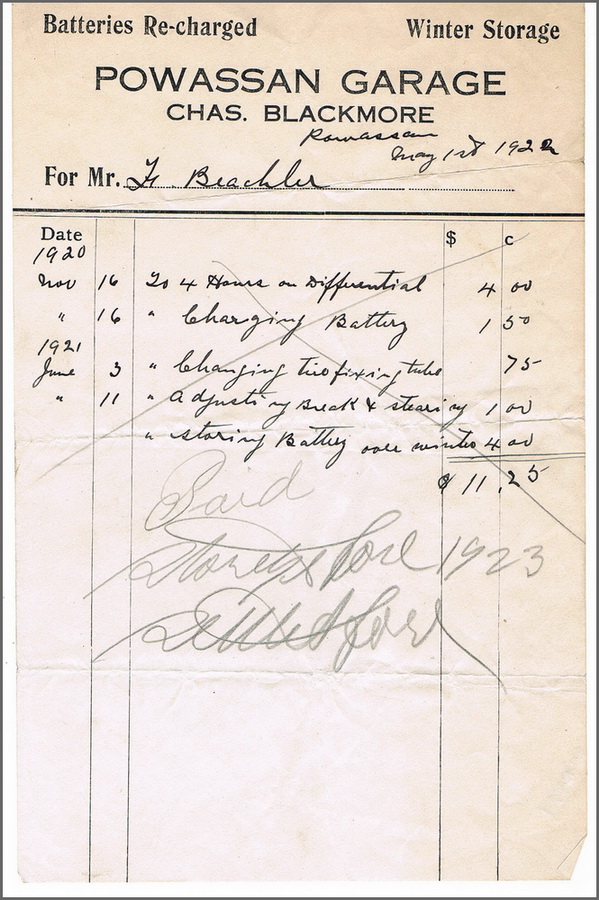 Batteries Re-charged Winter Storage
POWASSAN GARAGE
CHAS. BLACKMORE
Powassan
May 1st 1922
For Mr. Beachler
Date $ c
1920
Nov 16 To 4 Hours on Differential 4 00
" 16 " Charging Battery 1 50
1921
June 3 " Changing two fixing tube 75
" 11 " Adjusting Break & stearing 1 00
" storing Battery over winter 4 00
$ 11.25
Paid
1923